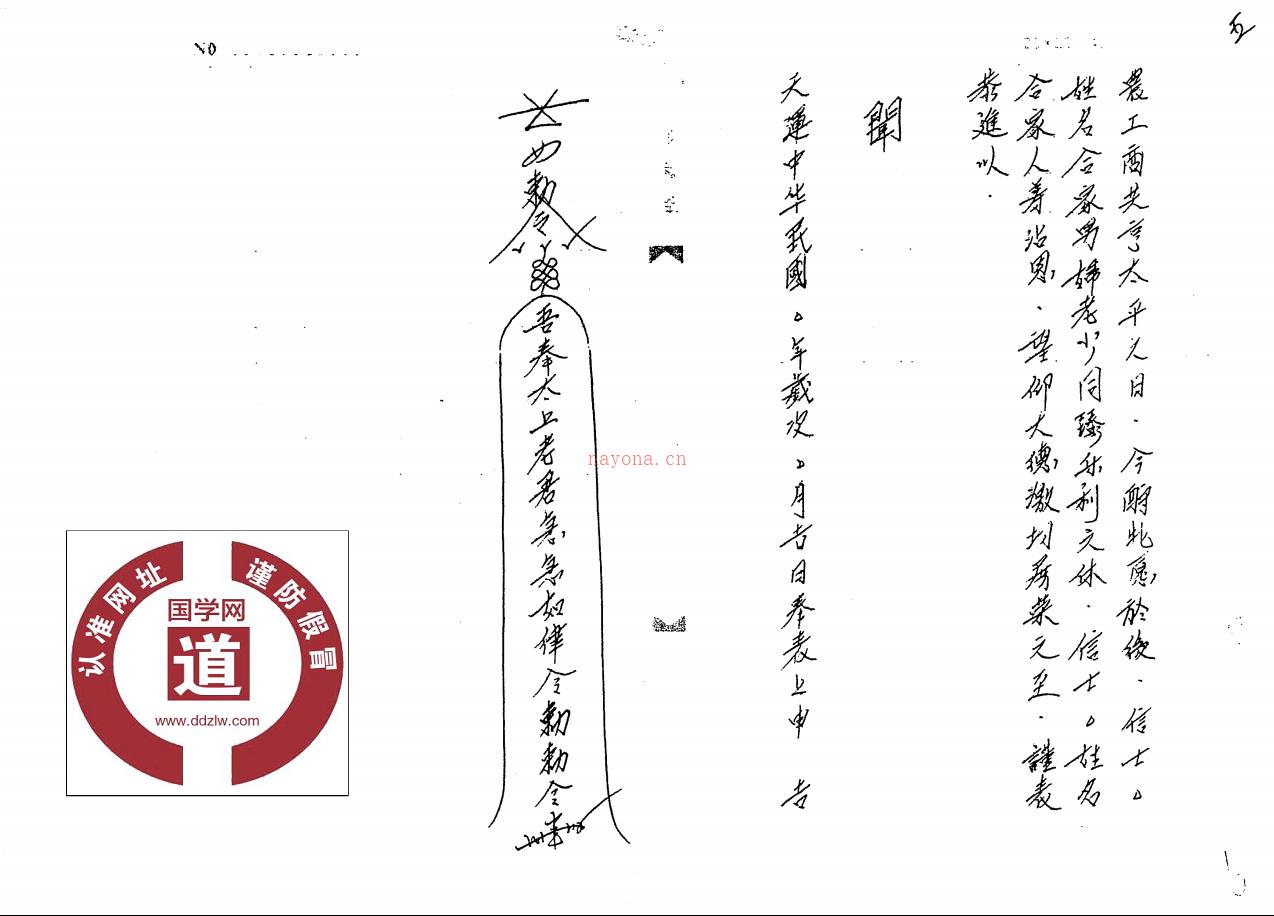 農工商共亨太平之日.今酧此愿於後.信士。
姓名合家男婦老少同臻乐利之休.信士。姓名
合家人等沾恩.望仰大德激切屏荣之至.謹表
恭進以.
聞
天運中华民國。年歲次。月吉日奉表上申 吉
勅令
吾奉太上老君急急如律令勅勅令
NO
nayona.cn
认准网址 谨防假冒
国学网
道
www.ddzlw.com